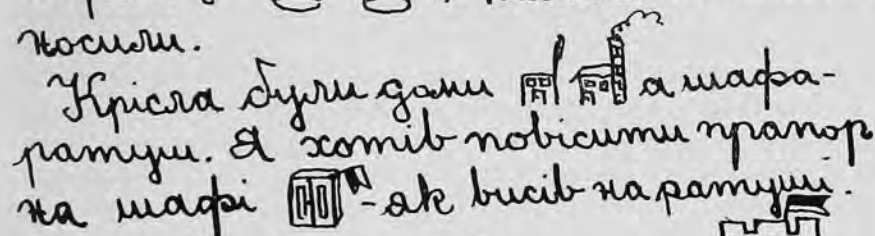 носили.
Крісла були доми а шафа-
ратуш. Я хотів повісити прапор
на шафі - як висів на ратуші.